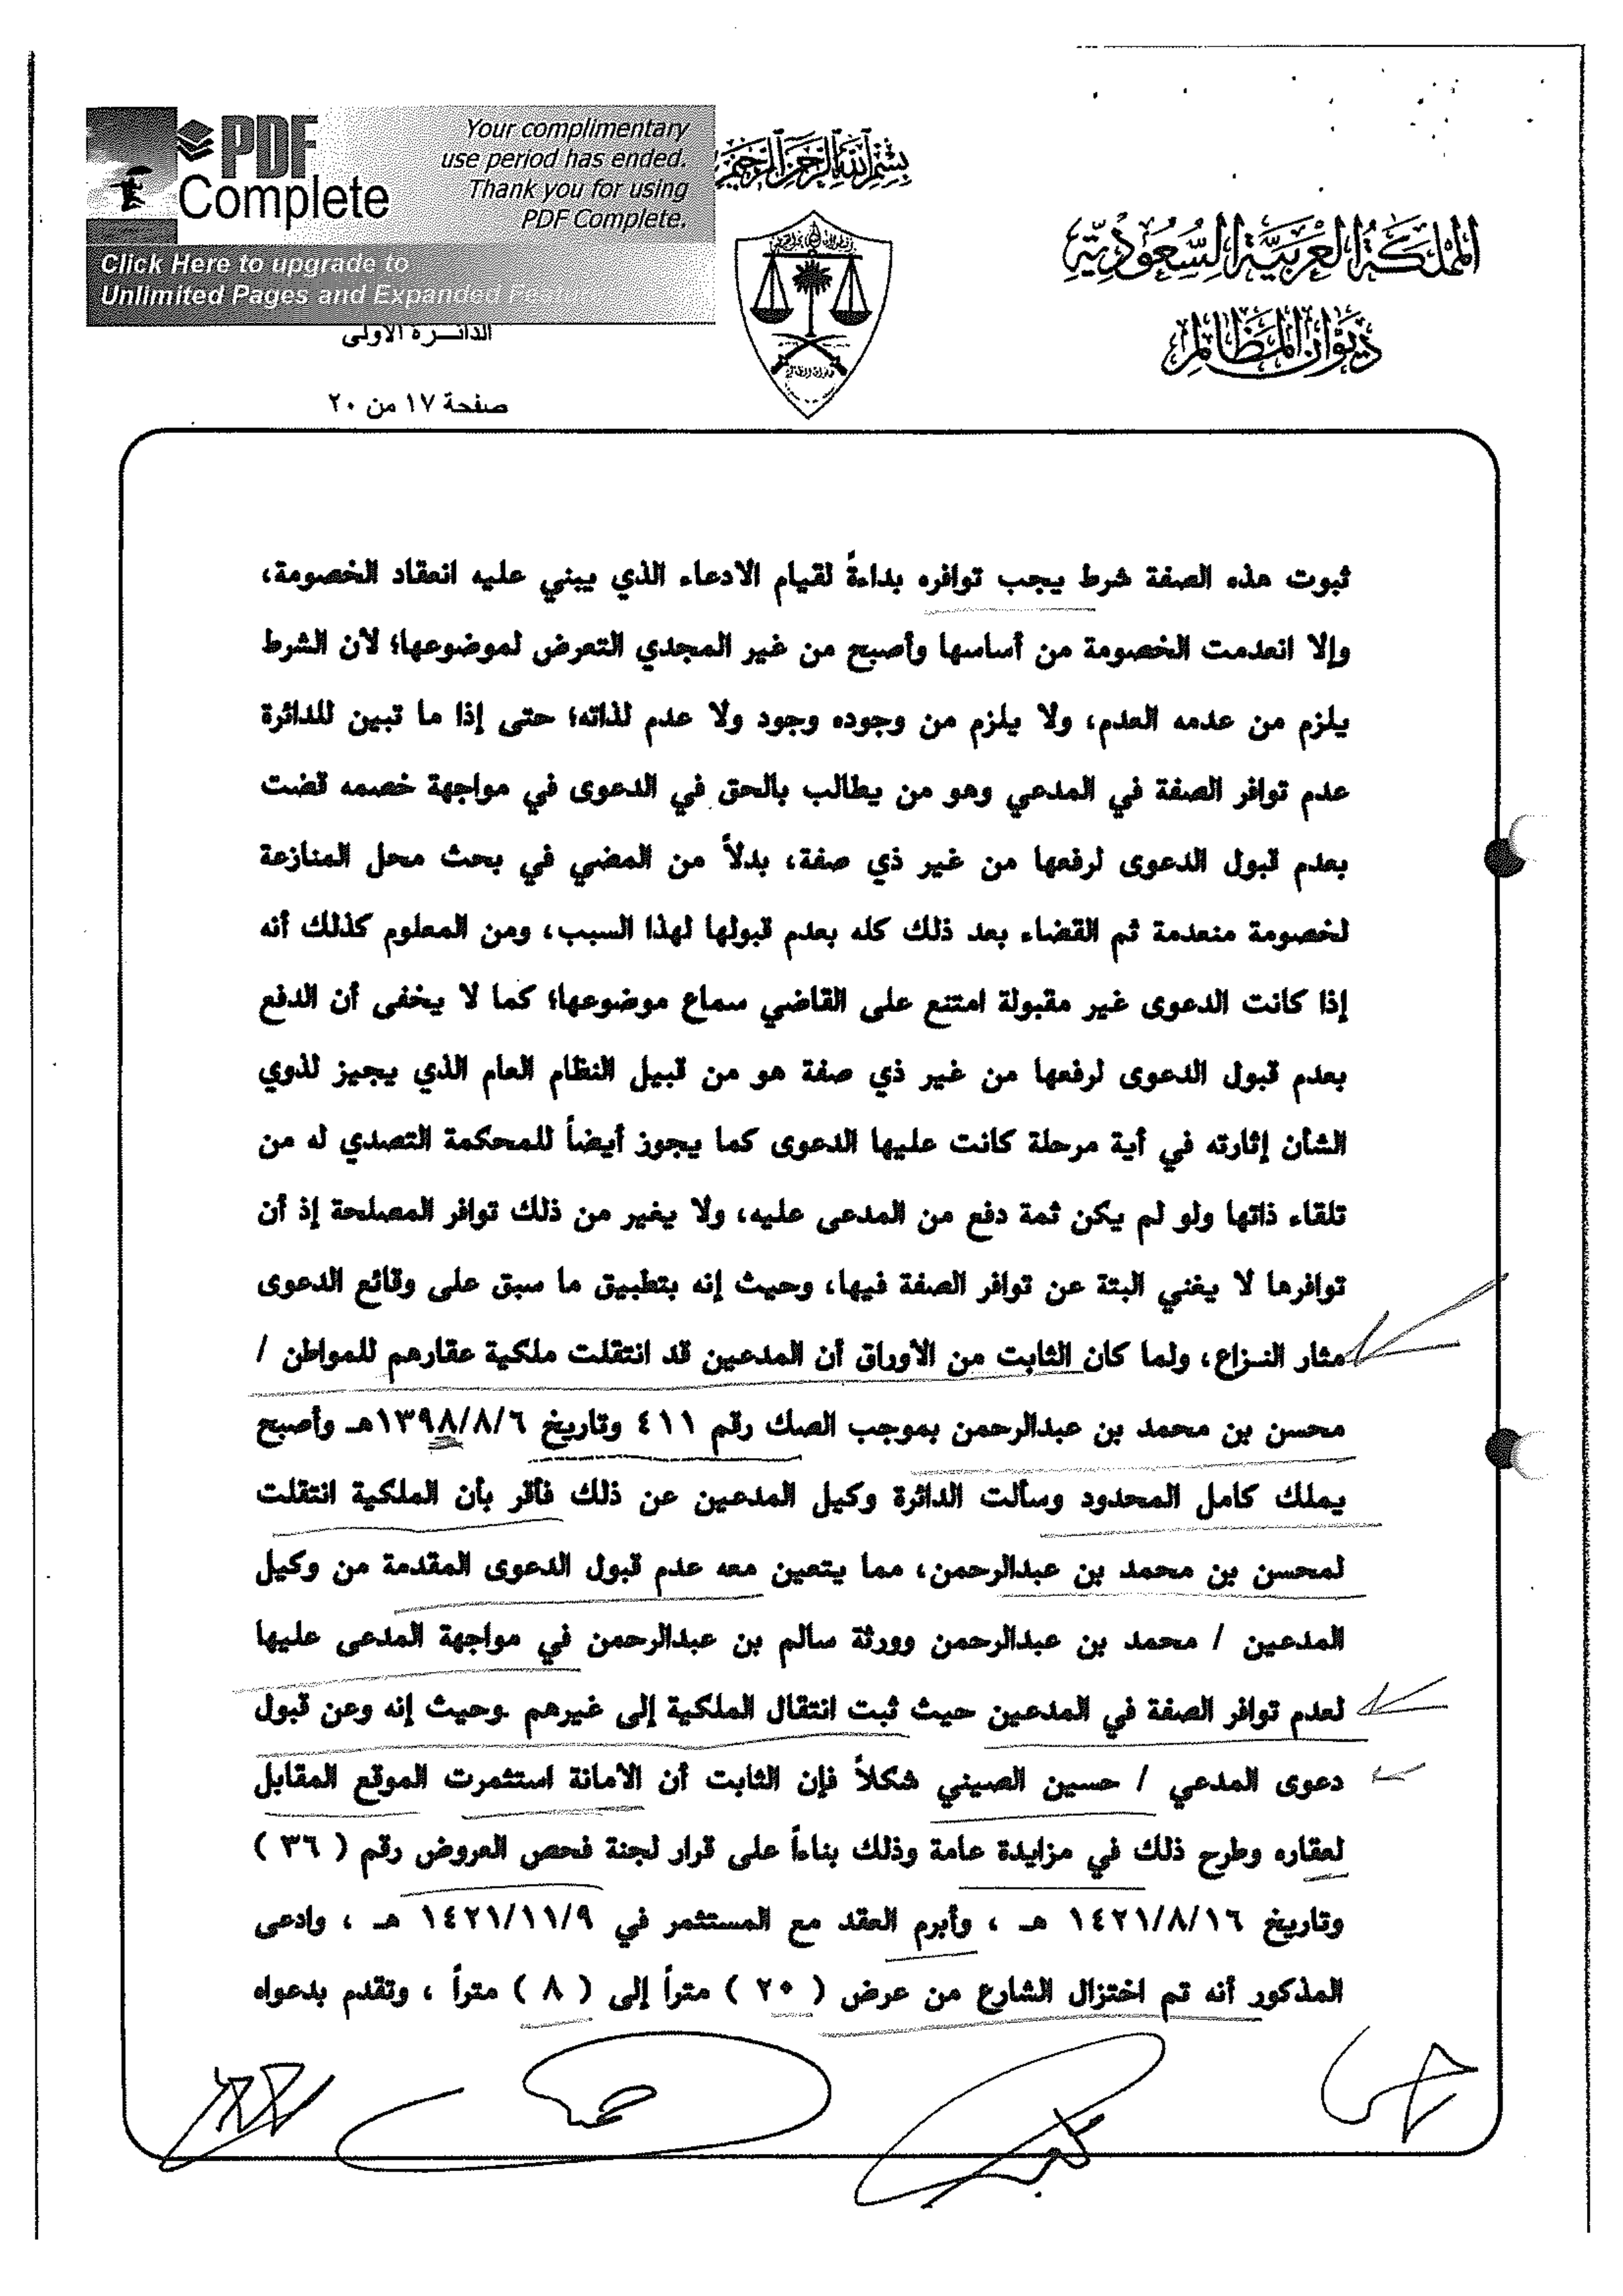 PDF Complete
Your complimentary
use period has ended.
Thank you for using
PDF Complete.
Click Here to upgrade to
Unlimited Pages and Expanded
بسم الله الرحمن الرحيم
المملكة العربية السعودية
ديوان المظالم
الدائـــرة الأولى
صفحة ١٧ من ٢٠
ثبوت هذه الصفة شرط يجب توافره بداءةً لقيام الادعاء الذي يبني عليه انعقاد الخصومة،
وإلا انعدمت الخصومة من أساسها وأصبح من غير المجدي التعرض لموضوعها؛ لأن الشرط
يلزم من عدمه العدم، ولا يلزم من وجوده وجود ولا عدم لذاته؛ حتى إذا ما تبين للدائرة
عدم توافر الصفة في المدعي وهو من يطالب بالحق في الدعوى في مواجهة خصمه قضت
بعدم قبول الدعوى لرفعها من غير ذي صفة، بدلاً من المضي في بحث محل المنازعة
لخصومة منعدمة ثم القضاء بعد ذلك كله بعدم قبولها لهذا السبب، ومن المعلوم كذلك أنه
إذا كانت الدعوى غير مقبولة امتنع على القاضي سماع موضوعها؛ كما لا يخفى أن الدفع
بعدم قبول الدعوى لرفعها من غير ذي صفة هو من قبيل النظام العام الذي يجيز لذوي
الشأن إثارته في أية مرحلة كانت عليها الدعوى كما يجوز أيضاً للمحكمة التصدي له من
تلقاء ذاتها ولو لم يكن ثمة دفع من المدعى عليه، ولا يغير من ذلك توافر المصلحة إذ أن
توافرها لا يغني البتة عن توافر الصفة فيها، وحيث إنه بتطبيق ما سبق على وقائع الدعوى
مثار النـزاع، ولما كان الثابت من الأوراق أن المدعين قد انتقلت ملكية عقارهم للمواطن /
محسن بن محمد بن عبدالرحمن بموجب الصك رقم ٤١١ وتاريخ ١٣٩٨/٨/٦هـ وأصبح
يملك كامل المحدود وسألت الدائرة وكيل المدعين عن ذلك فأقر بأن الملكية انتقلت
لمحسن بن محمد بن عبدالرحمن، مما يتعين معه عدم قبول الدعوى المقدمة من وكيل
المدعين / محمد بن عبدالرحمن وورثة سالم بن عبدالرحمن في مواجهة المدعى عليها
لعدم توافر الصفة في المدعين حيث ثبت انتقال الملكية إلى غيرهم .وحيث إنه وعن قبول
دعوى المدعي / حسين الصيني شكلاً فإن الثابت أن الأمانة استثمرت الموقع المقابل
لعقاره وطرح ذلك في مزايدة عامة وذلك بناءاً على قرار لجنة فحص العروض رقم ( ٣٦ )
وتاريخ ١٤٢١/٨/١٦ هـ ، وأبرم العقد مع المستثمر في ١٤٢١/١١/٩ هـ ، وادعى
المذكور أنه تم اختزال الشارع من عرض ( ٢٠ ) متراً إلى ( ٨ ) متراً ، وتقدم بدعواه